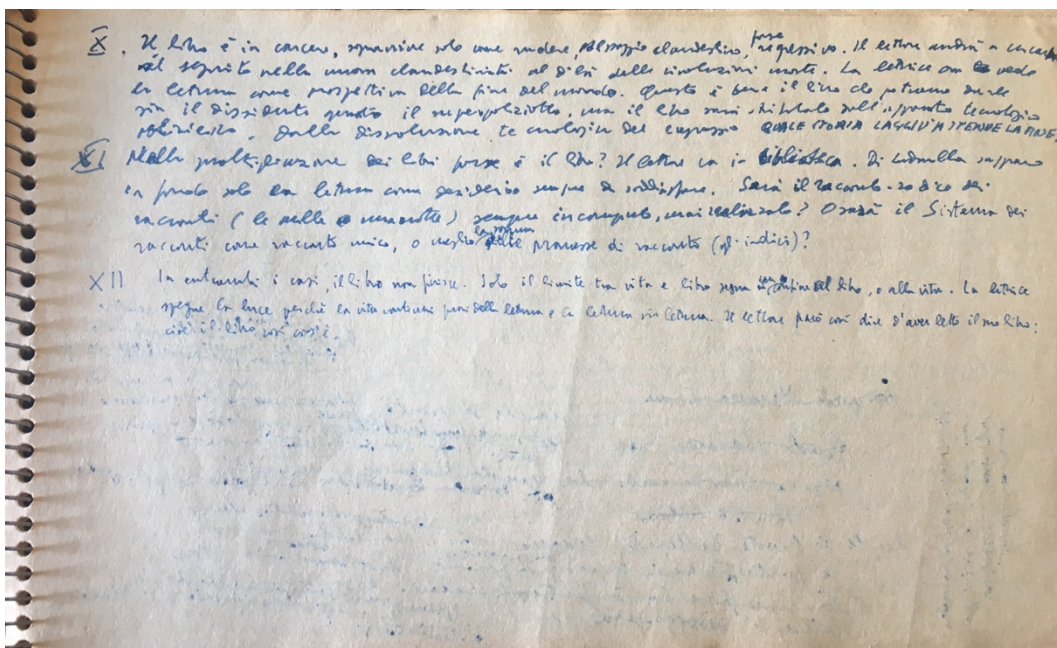 X. Il libro è in carcere, sopravvive solo come rudere, palinsesto clandestino, forse regressivo. Il lettore andrà a cercarne
il seguito nella nuova clandestinità al di là delle rivoluzioni morte. La lettrice ora vede
la lettura come prospettiva della fine del mondo. Questo è bene il libro che potranno
sia il dissidente quanto il superpoliziotto, ma il libro sarà stritolato dall'apparato tecnologico
poliziesco, dalla dissoluzione tecnologica del QUALE STORIA LAGGIÙ ATTENDE LA FINE,
XI Nella moltiplicazione dei libri forse è il libro? Il lettore va in biblioteca. Di Ludmilla sappiamo
in fondo solo la lettura come desiderio sempre da soddisfare. Sarà il racconto-radice dei
racconti (le mille e una notte) sempre incompiuto, mai realizzato? O sarà il Sistema dei
racconti come racconto unico, o meglio la somma delle promesse di racconto (gl'indici)?
XII In entrambi i casi, il libro non finisce. Solo il limite tra vita e libro segna un confine al libro, o alla vita. La lettrice
spegne la luce perché la vita continui fuori della lettura e la lettura sia lettura. Il lettore potrà così dire d'aver letto il suo libro:
cioè il libro così com'è.